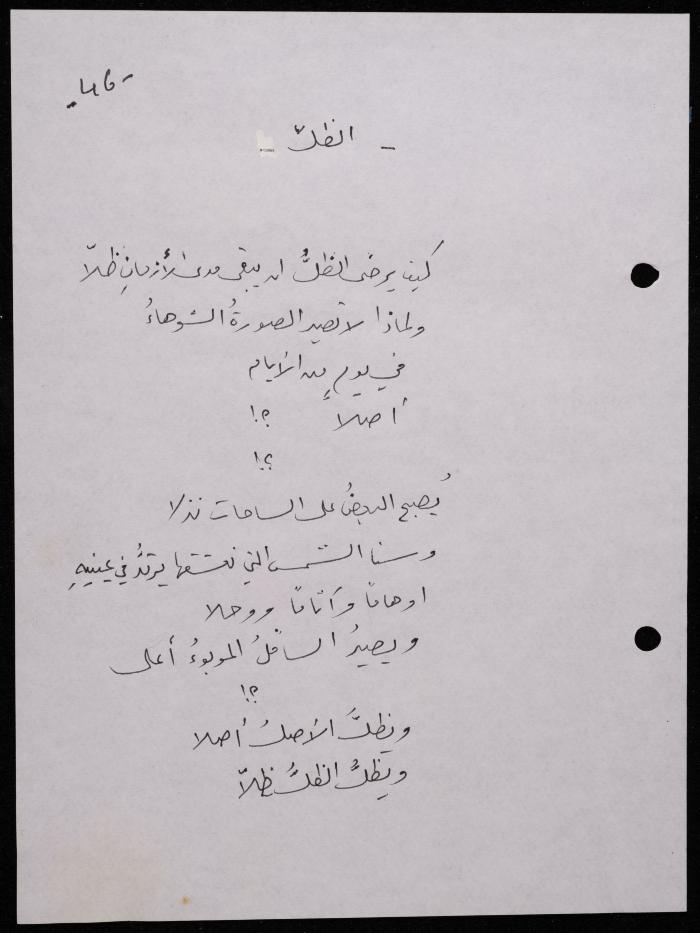 - ٤٦ -
- الظلّ -
كيف يرضى الظلُّ ان يبقى مدى الأزمانِ ظلاّ
ولماذا لا تصير الصورةُ الشوهاءُ
في يومٍ من الأيام
أصلاً ؟!
؟!
يُصبح البعضُ على الساحات نذلا
وسنا الشمس التي نعشقها يرتدُّ في عينيهِ
اوهاماً وآثاماً ووحلا
ويصيرُ السافلُ الموبوءُ أعلى
؟!
ويظلَّ الأصلُ أصلا
ويظلُّ الظلُّ ظلاّ